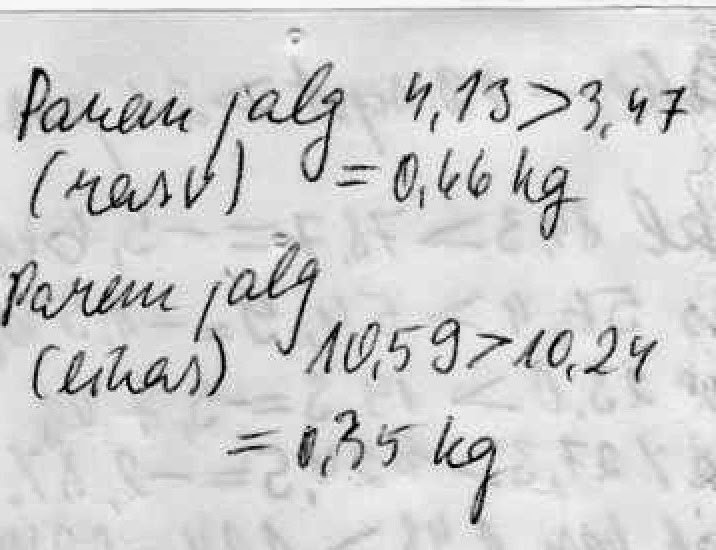 Parem jalg 4,13>3,47
(rasv) =0,66 kg
Parem jalg
(lihas) 10,59>10,24
=0,35 kg